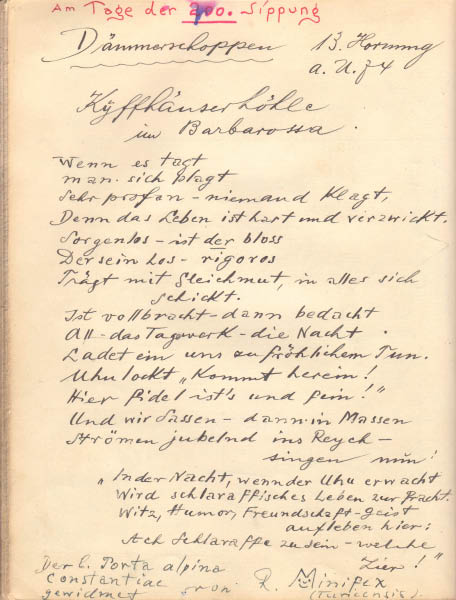 Am Tage der 200. Sippung
Dämmerschoppen 13. Hornung
a. U. 74
Kÿffhäuserhöhle
im Barbarossa.
Wenn es tagt
man sich plagt
Sehr profan - niemand klagt,
Denn das Leben ist hart und verzwickt.
Sorgenlos - ist der bloss
Der sein Los - rigoros
Trägt mit Gleichmut, in alles sich
schickt.
Ist vollbracht - dann bedacht
All - das Tagwerk - die Nacht
Ladet ein uns zu fröhlichem Tun.
Uhu lockt „Kommt herein!
Hier fidel ist's und fein!"
Und wir Sassen - dann in Massen
Strömen jubelnd ins Reych -
singen nun!
„In der Nacht, wenn der Uhu erwacht
Wird schlaraffisches Leben zur Pracht.
Witz, Humor, Freundschaft-geist
aufleben hier:
Ach Schlaraffe zu sein - welche
Zier!"
Der l. Porta alpina
Constantiae
gewidmet von R. Minifex
(Turicensis)